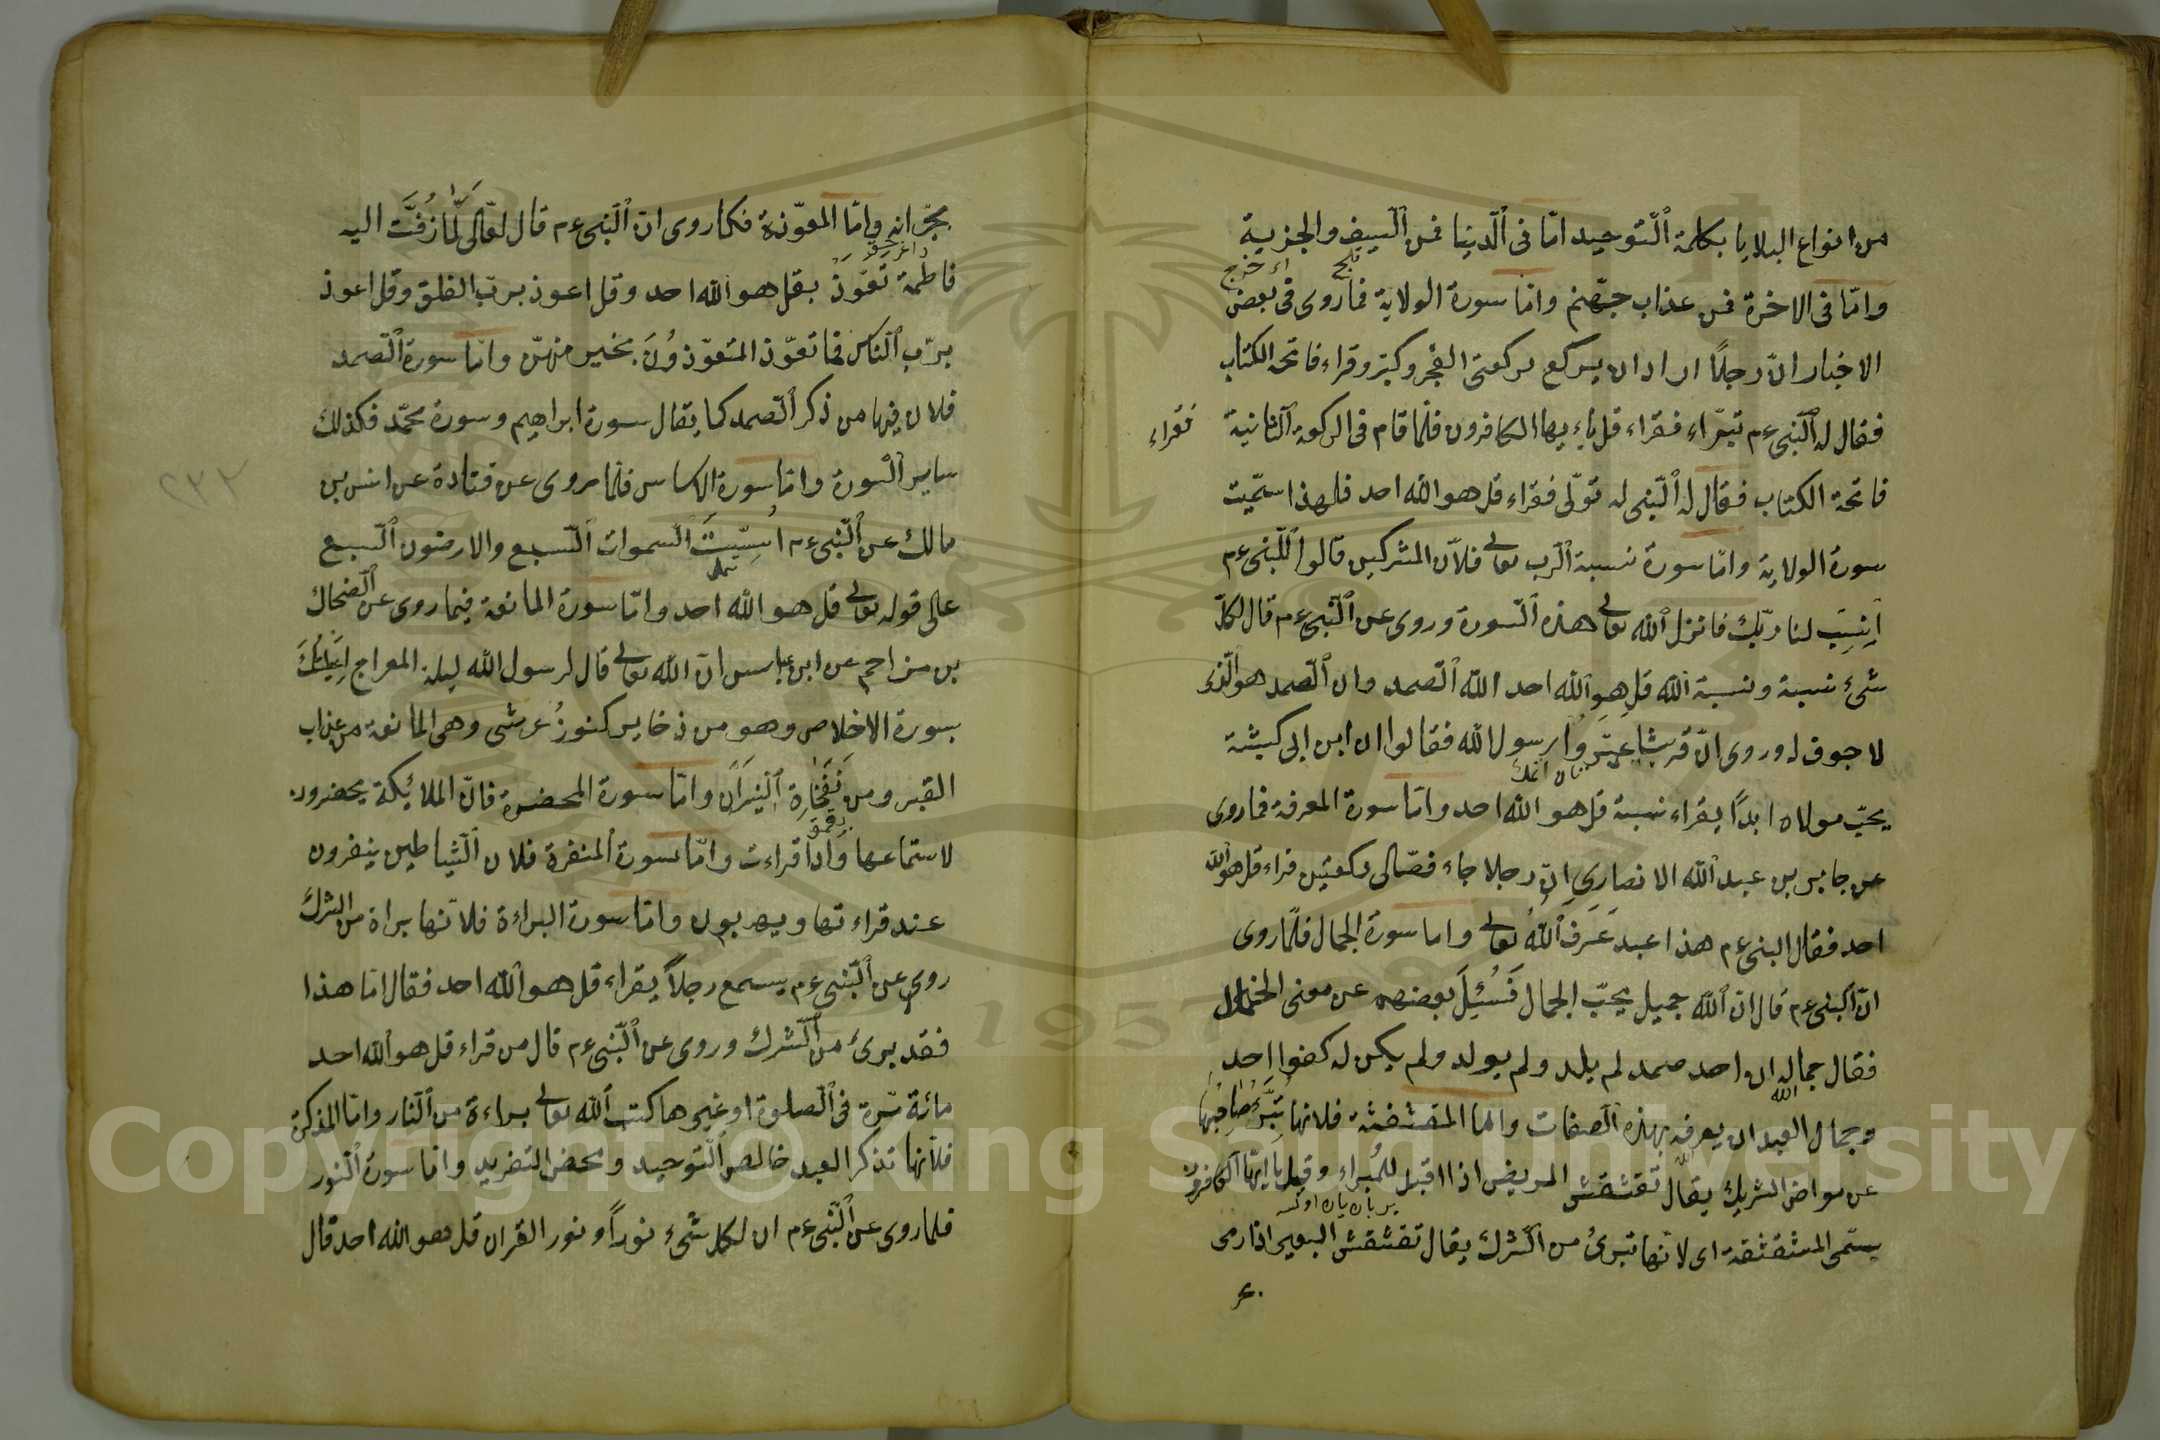 من انواع البلايا بكلمة التوحيد امّا فى الدنيا فمن السيف والجزية
وامّا فى الاخرة فمن عذاب جهنم وامّا سورة الولاية فما روى فى بعض
الاخبار انّ رجلاً اراد ان يركع ركعتى الفجر وكبّر وقراء فاتحة الكتاب
فقال له النبى عم تبرّاء فقراء قل ياء يها الكافرون فلمّا قام فى الركعة الثانية فقراء
فاتحة الكتاب فقال له النبى له تولّى فقراء قل هو الله احد فلهذا سمّيت
سورة الولاية وامّا سورة نسبة الرب تعالى فلانّ المشركين قالوا للنبى عم
اِنسِب لنا ربّك فانزل الله تعالى هذه السورة وروى عن النبى عم قال لكلّ
شىء نسبة ونسبة الله قل هو الله احد الله الصمد وان الصمد هو الذى
لا جوف له وروى انّ قريشا عيّروا رسول الله فقالوا ان ابن ابى كبشة
يحبّ مولاه ابداً يقراء نسبة قل هو الله احد وامّا سورة المعرفة فما روى
عن جابر بن عبد الله الانصارىِ انّ رجلا جاء فصّلى ركعتين قراء قل هو الله
احد فقال النبى عم هذا عبد عَرَفَ الله تعالى واما سورة الجمال فلمّا روى
انّ النبى عم قال انّ الله جميل يحبّ الجمال فَسُئِلَ بعضهم عن معنى
فقال جماله ان احد صمد لم يلد ولم يولد ولم يكن له كفوا احد
وجمال العبد ان يعرفه بهذه الصفات واما المقشقشة فلانها تبرّء صاحبها
عن مواضى الشريك يقال تقشقش المريض اذا اقبل للبراء وقيل يا ايّها الكافرون
يسمّى المشقشقة اى لانّها تبرئ من الشرك يقال تقشقش البعير اذا رمى
بجرّانه وامّا المعوّذة فكما روى انّ النبى عم قال لعلى لمّا زُفَّت اليه
فاطمة تعوّذ بقل هو الله احد وقل اعوذ بربّ الفلق وقل اعوذ
بربّ الناس فما تعوّذ المتعوّذونَ بخير منهنّ وامّا سورة الصمد
فلان فيها من ذكر الصمد كما يقال سورة ابراهيم وسورة محمّد فكذلك
ساير السورة وامّا سورة الاساس فلما روى عن قتادة عن انس بن
مالك عن النبى عم اُسِّسَتَ السموات السبع والارضون السبع
على قوله تعالى قل هو الله احد وامّا سورة المانعة فيما روى عن الضحاك
بن مزاحم عن ابن عباس انّ الله تعالى قال لرسول الله ليلة المعراج
بسورة الاخلاص وهو من ذخاير كنوزُ عرشى وهى المانعة من عذاب
القبر ومن النيران وامّا سورة المحضرة فانّ الملائكة يحضرون
لاستماعها واذا قراءت وامّا سورة المنفرة فلان الشياطين ينفرون
عند قراءتها ويهربون وامّا سورة البراءة فلانّها براة من الشرك
روى عن النبى عم يسمع رجلاً يقراء قل هو الله احد فقال امّا هذا
فقد برئ من الشرك وروى عن النبى عم قال من قراء قل هو الله احد
مائة مرّة فى الصلوة او غيرها كتب الله تعالى براءة من النار وامّا المذكرة
فلانّها تذكر العبد خالص التوحيد ومحض التفريد وامّا سورة النور
فلما روى عن النبى عم ان لكل شىء نوراً ونور القران قل هو الله احد قال
٢٣٢
Copyright © King Saud University
1957